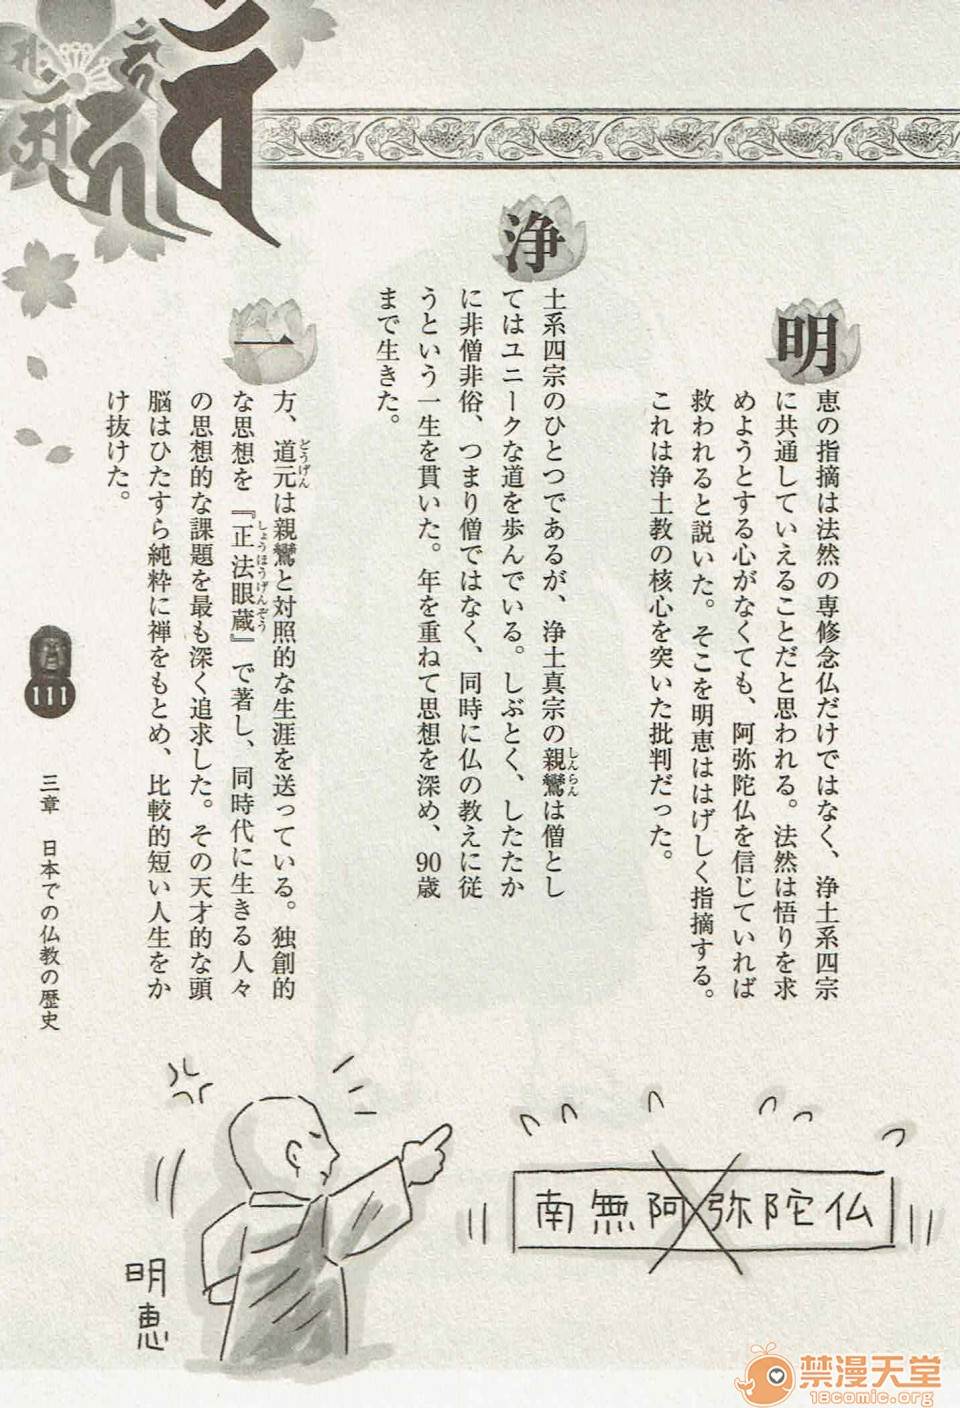 明恵の指摘は法然の専修念仏だけではなく、浄土系四宗
に共通していえることだと思われる。法然は悟りを求
めようとする心がなくても、阿弥陀仏を信じていれば
救われると説いた。そこを明恵ははげしく指摘する。
これは浄土教の核心を突いた批判だった。
浄土系四宗のひとつであるが、浄土真宗の親鸞は僧とし
しんらん
てはユニークな道を歩んでいる。しぶとく、したたか
に非僧非俗、つまり僧ではなく、同時に仏の教えに従
うという一生を貫いた。年を重ねて思想を深め、90歳
まで生きた。
一方、道元は親鸞と対照的な生涯を送っている。独創的
どうげん
な思想を『正法眼蔵』で著し、同時代に生きる人々
しょうほうげんぞう
の思想的な課題を最も深く追求した。その天才的な頭
脳はひたすら純粋に禅をもとめ、比較的短い人生をか
け抜けた。
111
三章 日本での仏教の歴史
南無阿弥陀仏
明恵
禁漫天堂
18comic.org